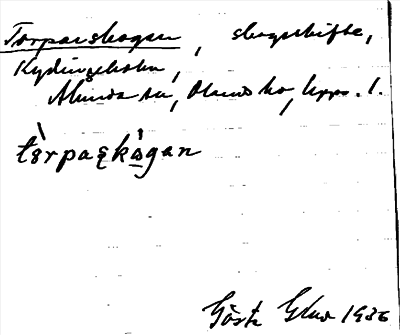 Torparskogen, skogsskifte,
Kydingeholm,
Almunda sn, Olands hd, Upps. l.
tòrpaskògan
Gösta Glas 1936